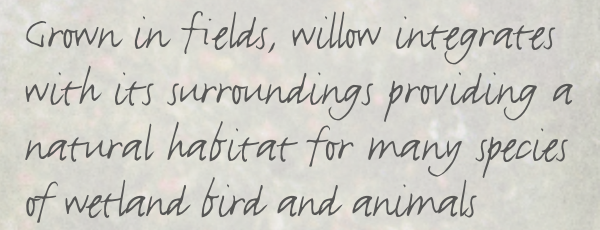 Grown in fields, willow integrates
with its surroundings providing a
natural habitat for many species
of wetland bird and animals